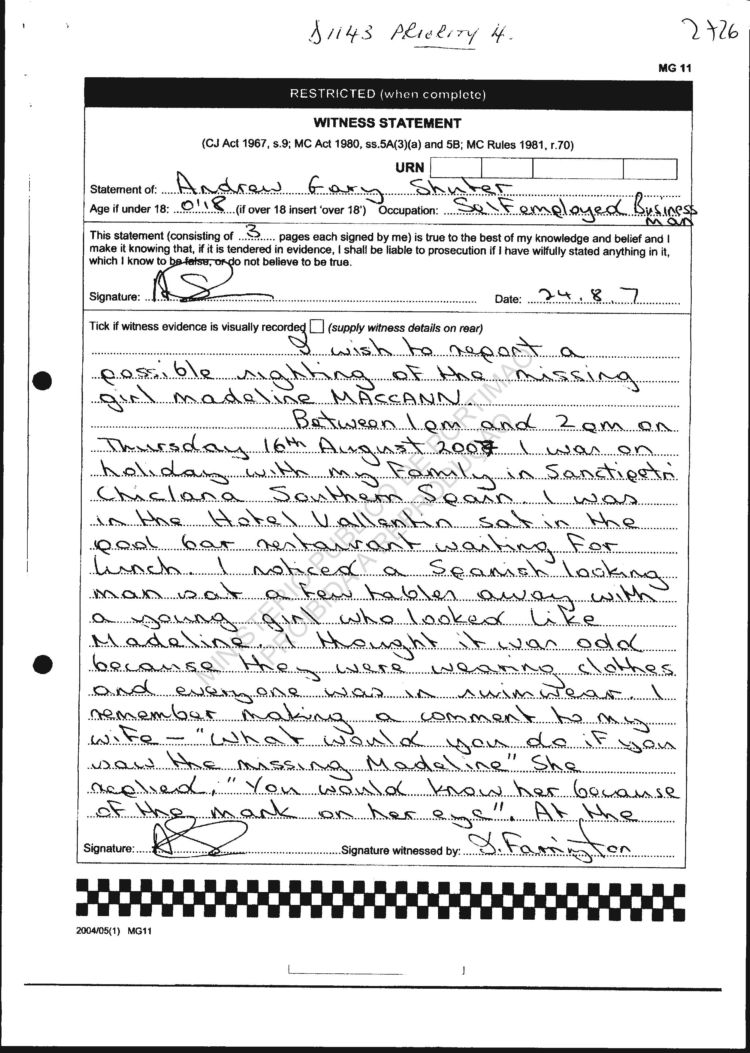 S1143 PRIORITY 4.
2726
MG 11
RESTRICTED (when complete)
WITNESS STATEMENT
(CJ Act 1967, s.9; MC Act 1980, ss.5A(3)(a) and 5B; MC Rules 1981, r.70)
URN
Statement of: Andrew Gary Shuter
Age if under 18: O'18 (if over 18 insert 'over 18') Occupation: Self employed Business man
This statement (consisting of 3 pages each signed by me) is true to the best of my knowledge and belief and I
make it knowing that, if it is tendered in evidence, I shall be liable to prosecution if I have wilfully stated anything in it,
which I know to be false, or do not believe to be true.
Signature: Date: 24.8.7
Tick if witness evidence is visually recorded (supply witness details on rear)
I wish to report a
possible sighting of the missing
girl madeline MACCANN.
Between 1pm and 2pm on
Thursday 16th August 2007 I was on
holiday with my Family in Sanctipetri
Chiclana Southern Spain. I was
in the Hotel Vallentin sat in the
pool bar restaurant waiting for
lunch. I noticed a Spanish looking
man sat a few tables away with
a young girl who looked like
Madeline. I thought it was odd
because they were wearing clothes
and everyone was in swimwear. I
remember making a comment to my
wife – "What would you do if you
saw the missing Madeline" She
replied, "You would know her because
of the mark on her eye". At the
Signature: Signature witnessed by: S. Farrington
2004/05(1) MG11
MINISTERIO PUBLICO DE PORTIMAO
PROIBIDA A REPRODUÇÃO